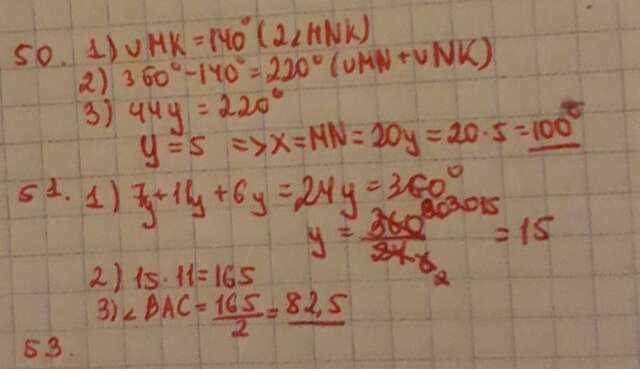 50. 1) ∪MK = 140° (2∠MNK)
2) 360° - 140° = 220° (∪MN + ∪NK)
3) 44y = 220°
y = 5 => X = MN = 20y = 20·5 = 100°
51. 1) 7y + 11y + 6y = 24y = 360°
y = 360/24 = 15
2) 15·11 = 165
3) ∠BAC = 165/2 = 82,5
53.